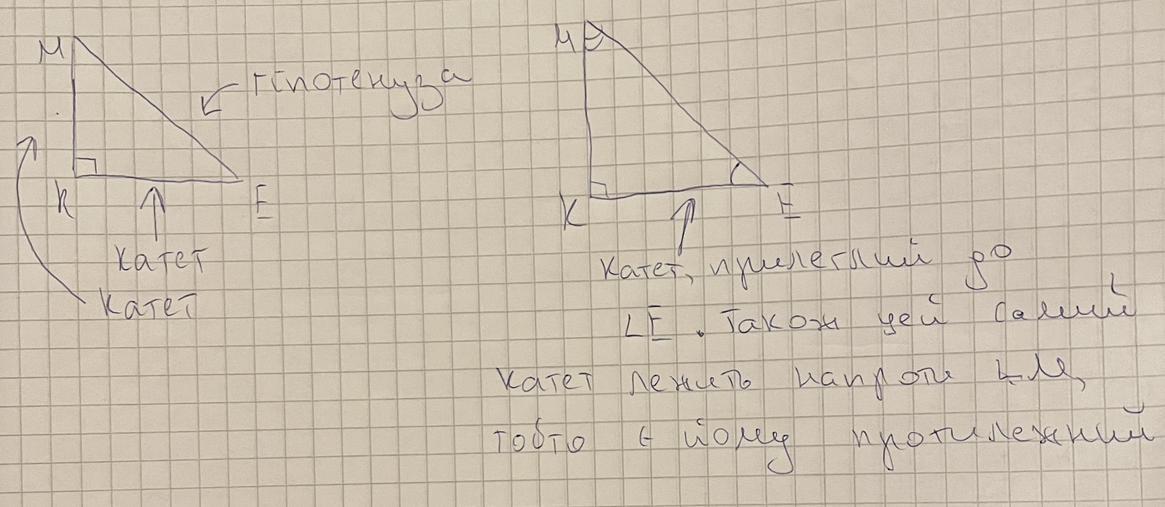 M
гіпотенуза
K
E
катет
катет
M
K
E
катет, прилеглий до
∠E. Також цей самий
катет лежить напроти ∠M,
тобто є йому протилежний